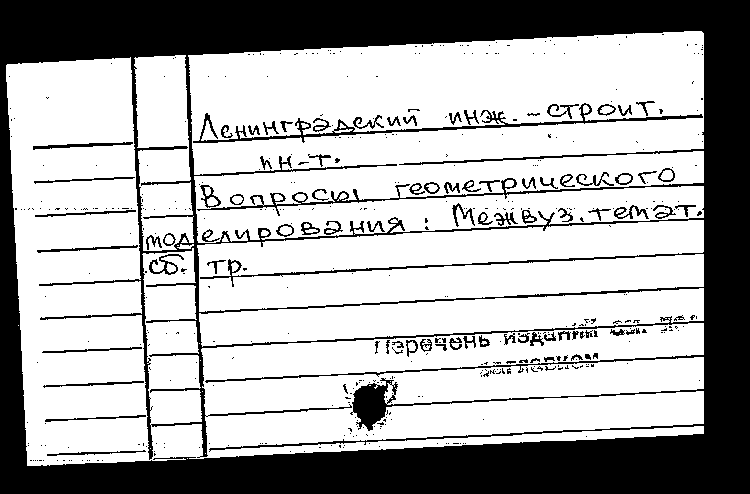 Ленинградский инж.-строит.
ин-т.
Вопросы геометрического
моделирования: Межвуз. темат.
сб. тр.
Перечень изданий
заглавием